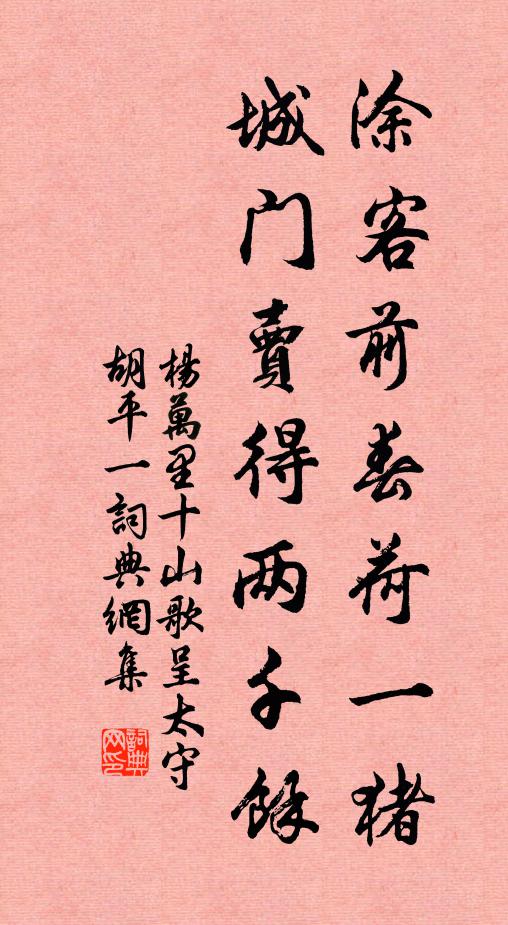 涂客前春荷一猪
城门賣得两千餘
楊萬里十山歌呈太守
胡平一詞典網集
詞典网印